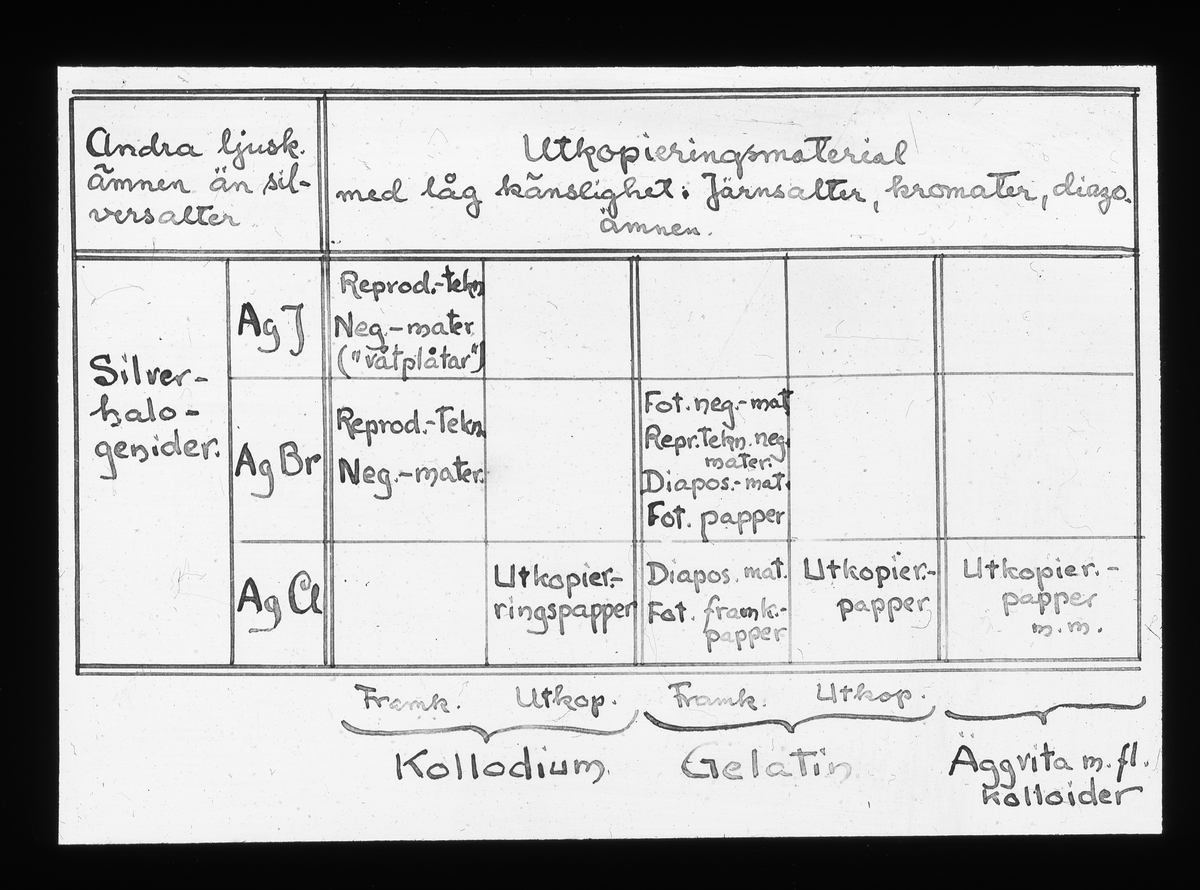 Andra ljusk.
ämnen än sil-
versalter
Utkopieringsmaterial
med låg känslighet: Järnsalter, kromater, diazo.
ämnen.
Silver-
halo-
genider.
Ag J
Reprod.-tekn
Neg.-mater
("våtplåtar")
Ag Br
Reprod.-Tekn.
Neg.-mater.
Fot. neg.-mat
Repr.tekn. neg.
mater.
Diapos.-mat.
Fot. papper
Ag Cl
Utkopier-
ringspapper
Diapos. mat.
Fot. framk.-
papper
Utkopier.-
papper
Utkopier.-
papper
m.m.
Framk. Utkop. Framk. Utkop.
Kollodium. Gelatin Äggvita m.fl.
kolloider